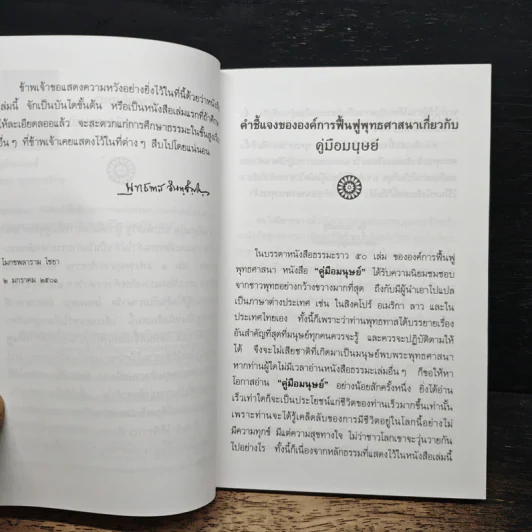 ข้าพเจ้าขอแสดงความหวังอย่างยิ่งไว้ในที่นี้ด้วยว่าหนังสือ
เล่มนี้ จักเป็นบันไดขั้นต้น หรือเป็นหนังสือเล่มแรกที่ถ้าศึกษา
ให้ละเอียดลออแล้ว จะสะดวกแก่การศึกษาธรรมะในชั้นสูงเล่ม
อื่นๆ ที่ข้าพเจ้าเคยแสดงไว้ในที่ต่างๆ สืบไปโดยแน่นอน
พุทธทาส อินทปัญโญ
โมกขพลาราม ไชยา
๒ มกราคม ๒๕๐๑
คำชี้แจงขององค์การฟื้นฟูพุทธศาสนาเกี่ยวกับ
คู่มือมนุษย์
ในบรรดาหนังสือธรรมะราว ๕๐ เล่ม ขององค์การฟื้นฟู
พุทธศาสนา หนังสือ "คู่มือมนุษย์" ได้รับความนิยมชมชอบ
จากชาวพุทธอย่างกว้างขวางมากที่สุด ถึงกับมีผู้นำเอาไปแปล
เป็นภาษาต่างประเทศ เช่น ในสิงคโปร์ อเมริกา ลาว และใน
ประเทศไทยเอง ทั้งนี้ก็เพราะว่าท่านพุทธทาสได้บรรยายเรื่อง
อันสำคัญที่สุดที่มนุษย์ทุกคนควรจะรู้ และควรจะปฏิบัติตามให้
ได้ จึงจะไม่เสียชาติที่เกิดมาเป็นมนุษย์พบพระพุทธศาสนา
หากท่านผู้ใดไม่มีเวลาอ่านหนังสือธรรมะเล่มอื่นๆ ก็ขอให้หา
โอกาสอ่าน "คู่มือมนุษย์" อย่างน้อยสักครั้งหนึ่ง ยิ่งได้อ่าน
เร็วเท่าใดก็จะเป็นประโยชน์แก่ชีวิตของท่านเร็วมากขึ้นเท่านั้น
เพราะท่านจะได้รู้เคล็ดลับของการมีชีวิตอยู่ในโลกนี้อย่างไม่
มีความทุกข์ มีแต่ความสุขทางใจ ไม่ว่าชาวโลกเขาจะวุ่นวายกัน
ไปอย่างไร ทั้งนี้ก็เนื่องจากหลักธรรมที่แสดงไว้ในหนังสือเล่มนี้